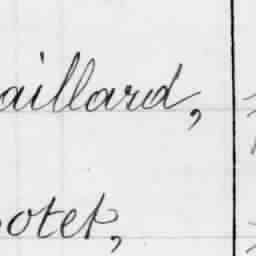 aillard,
otet,